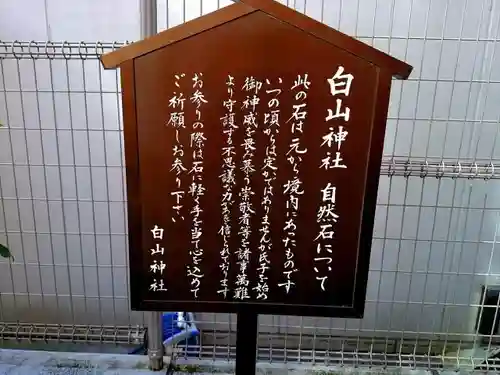 白山神社 自然石について
此の石は元から境内にあったものです
いつの頃からは定かではありませんが氏子を始め
御神威を畏み慕う崇敬者等を諸事萬難
より守護する不思議な力がある信じられております
お参りの際は石に軽く手を当て心を込めて
ご祈願しお参り下さい
白山神社